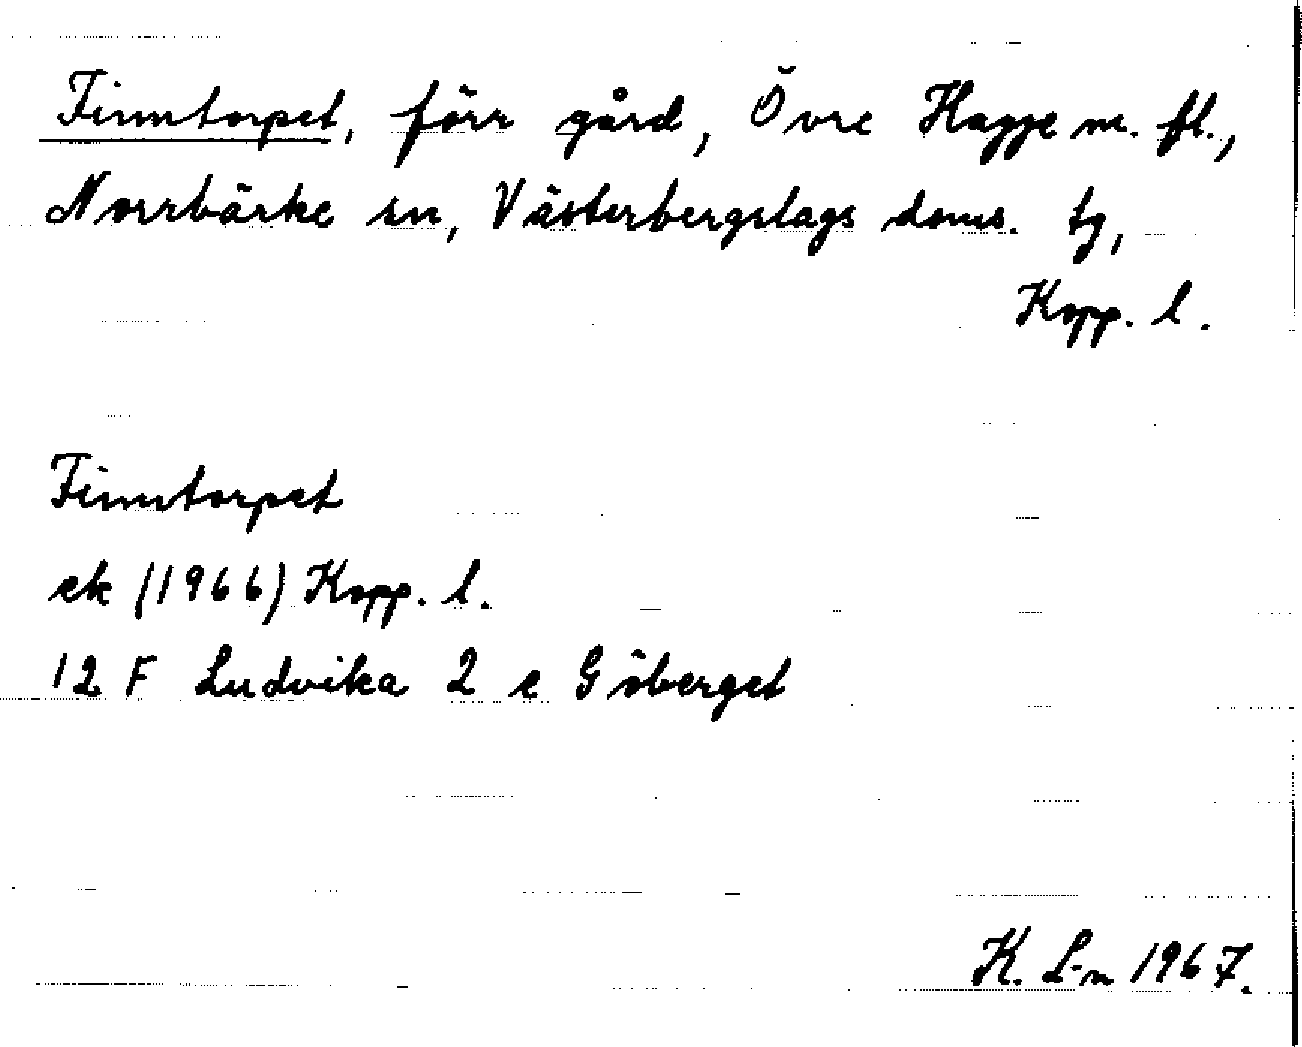 Finntorpet, förr gård, Övre Hagge m. fl.,
Norrbärke sn, Västerbergslags doms. tg,
Kopp. l.
Finntorpet
ek (1966) Kopp. l.
12 F Ludvika 2 e Göberget
K. L-n 1967.